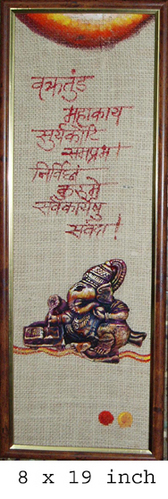 वक्रतुंड
महाकाय
सुर्यकोटि
समप्रभ।
निर्विघ्नं
कुरुमे
सर्वकार्येषु
सर्वदा!
8 x 19 inch